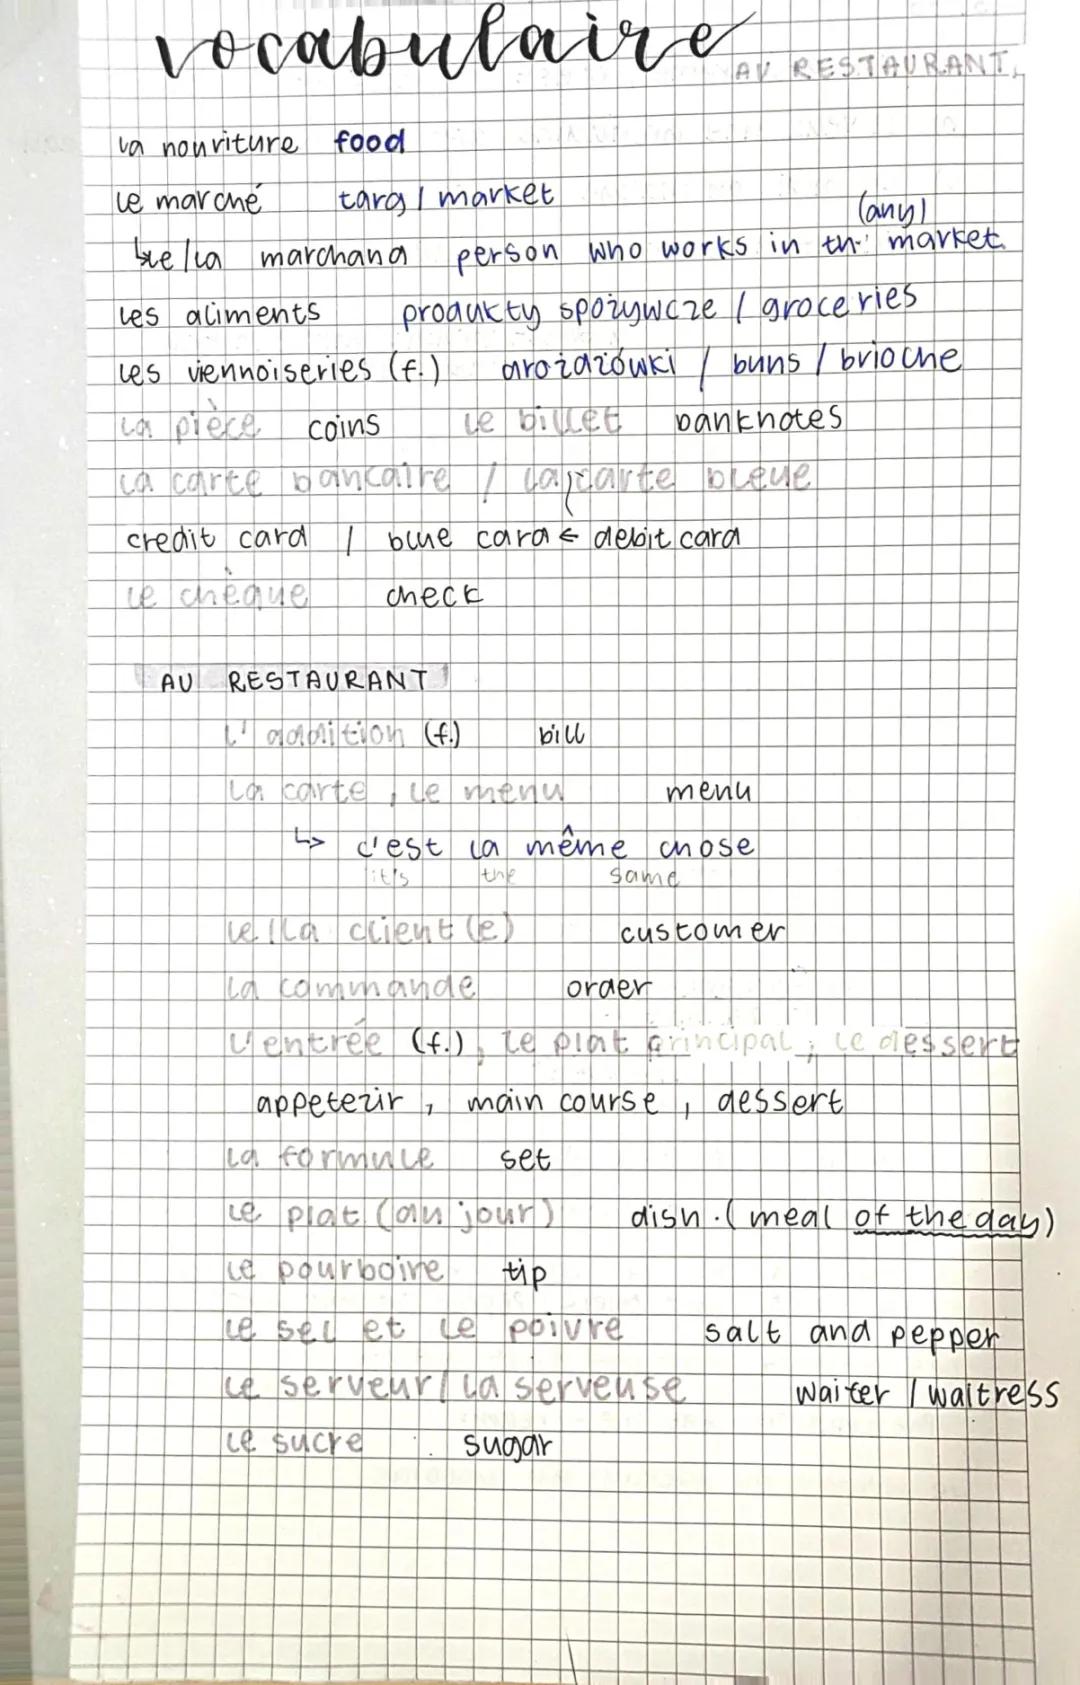 vocabulaire
AU RESTAURANT
la nouriture food
le marché targ / market
(any)
le/la marchand person who works in the market
les aliments produkty spożywcze / groceries
les viennoiseries (f.) drożdżówki / buns / brioche
la pièce coins le billet banknotes
la carte bancaire / la carte bleue
credit card / blue card ← debit card
le chèque check
AU RESTAURANT
l'addition (f.) bill
la carte, le menu menu
↳ c'est la même chose
it's the same
le/la client(e) customer
la commande order
l'entrée (f.), le plat principal, le dessert
appetezir, main course, dessert
la formule set
le plat (du jour) dish (meal of the day)
le pourboire tip
le sel et le poivre salt and pepper
le serveur/la serveuse waiter / waitress
le sucre sugar